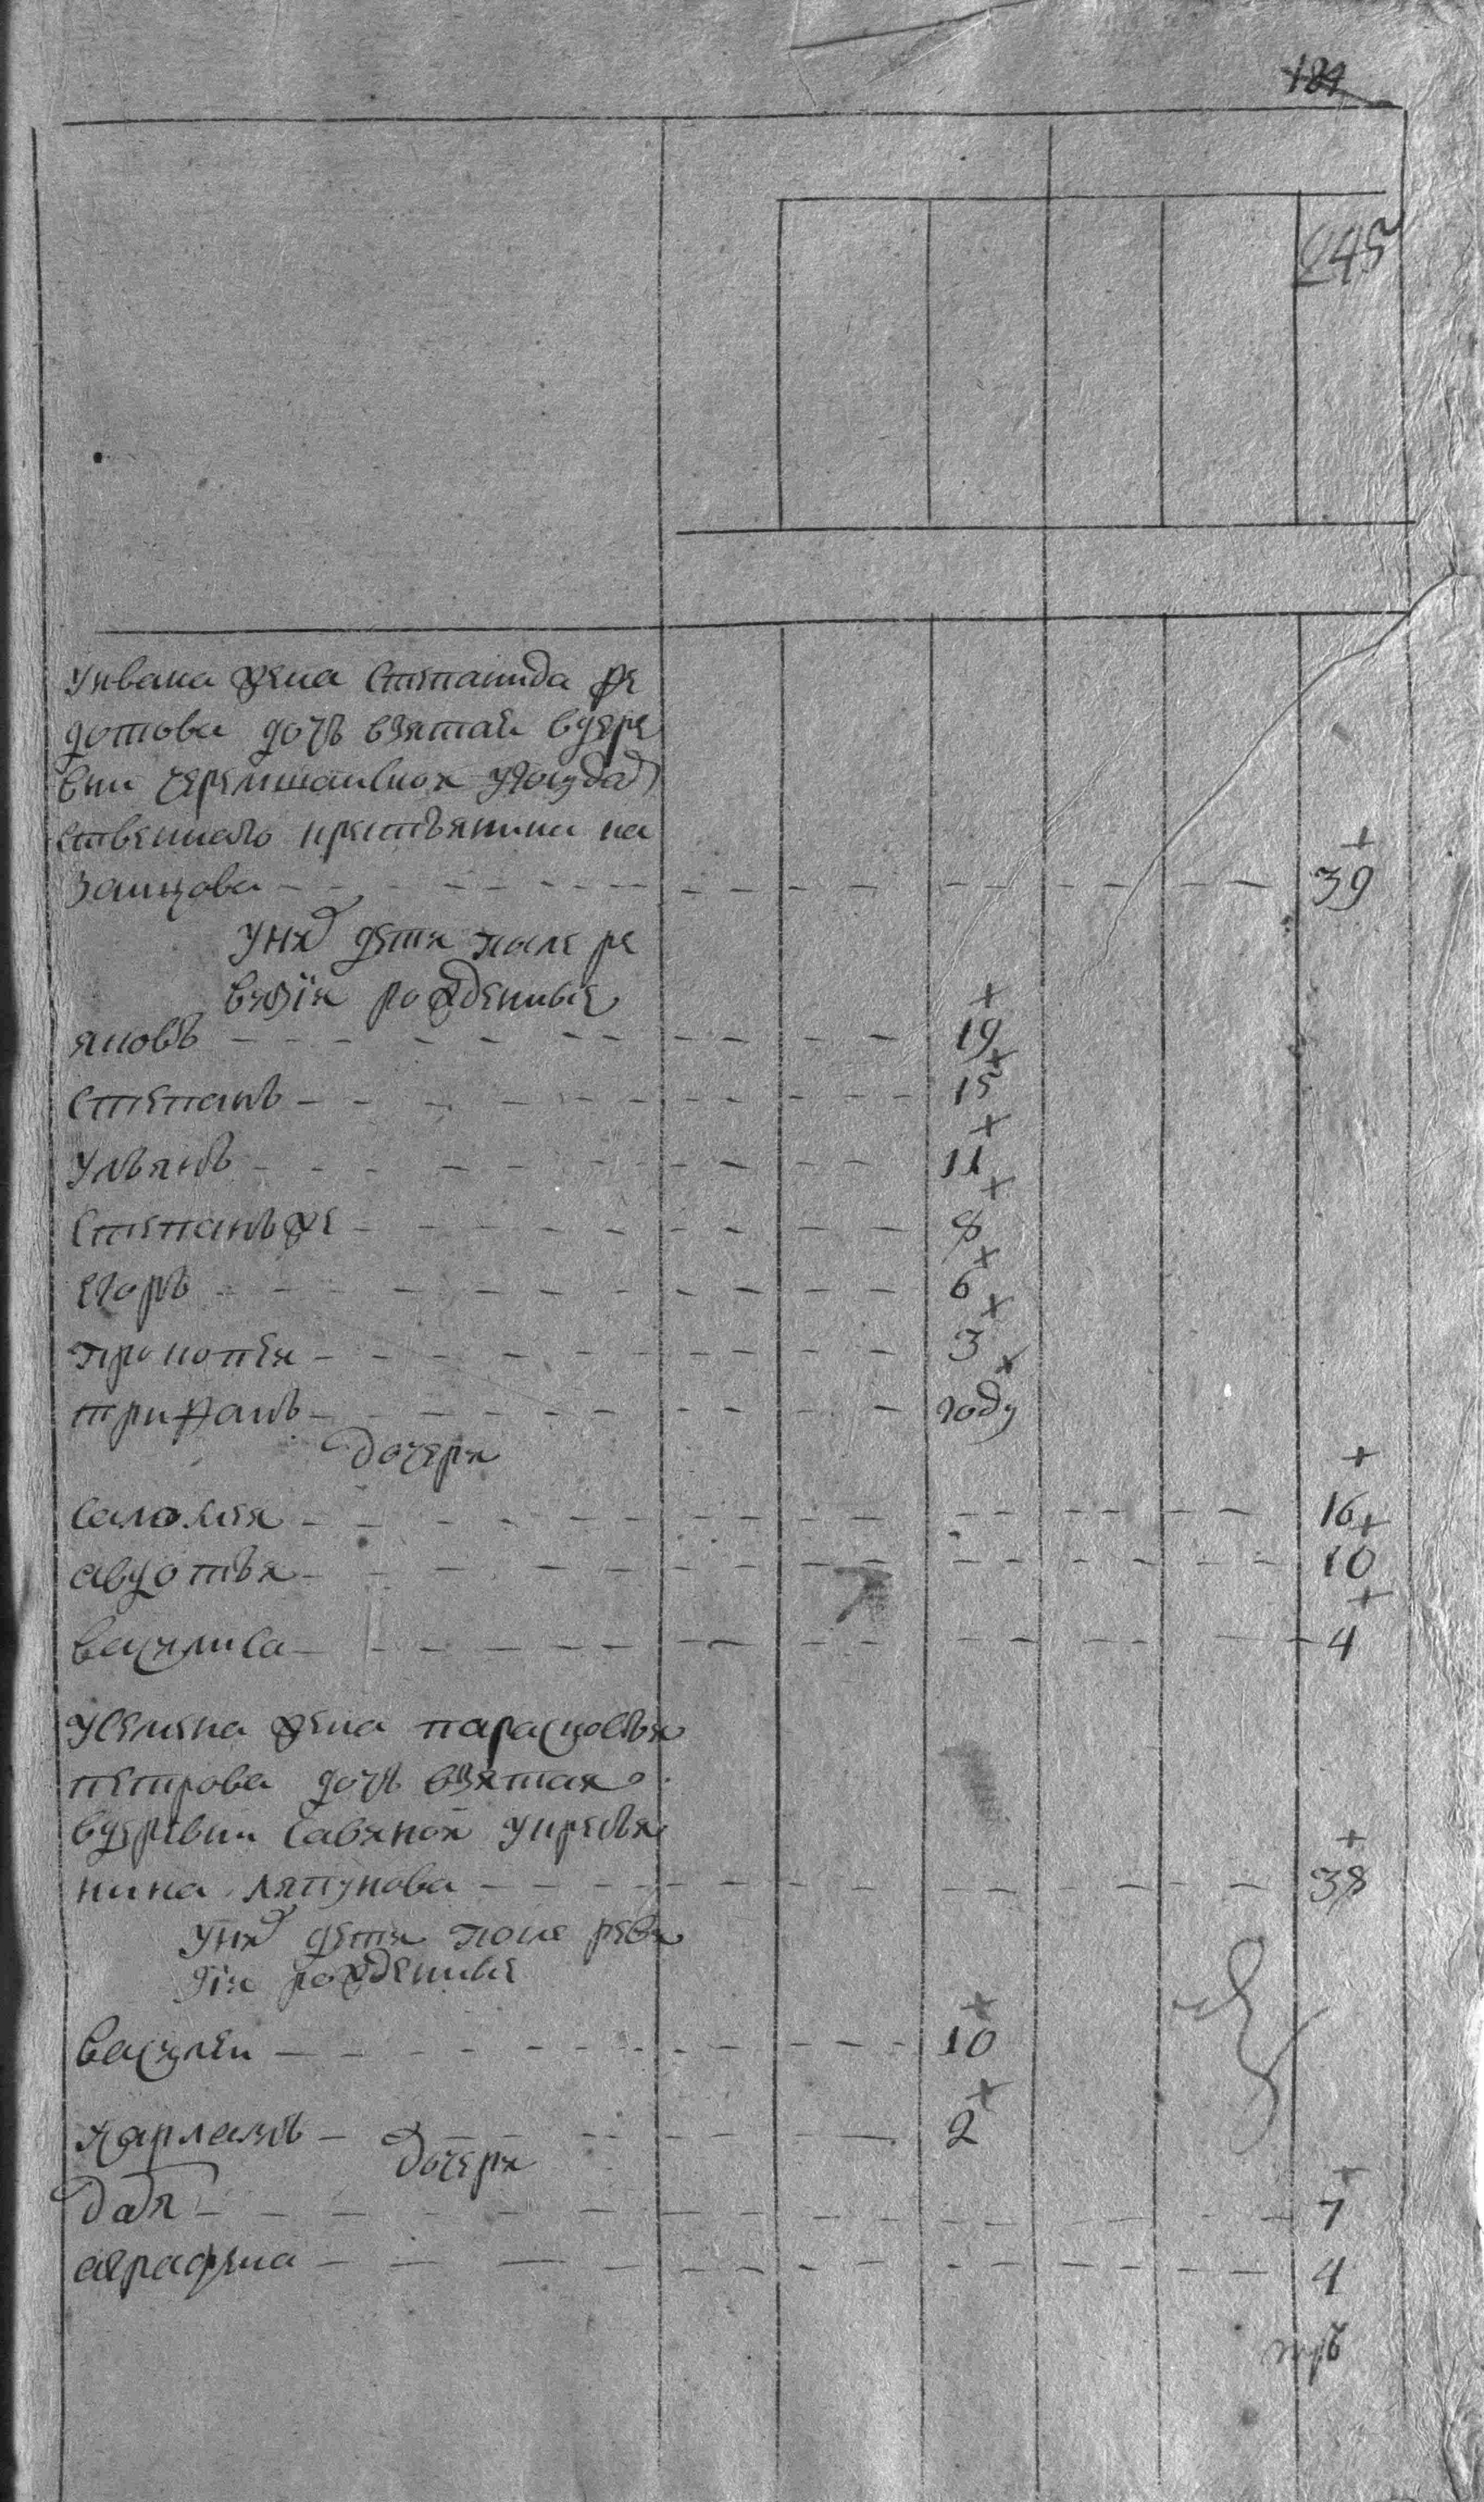 184
245
уивана жена степанида фе
дотова дочь взятая вдере
вни черемшанской угосудар
ственнаго крестьянина ка
занцова 39
уних дети после ре
визiи рожденные
яковъ 19
степанъ 15
ульянъ 11
степанъже 8
егоръ 6
прокопеи 3
трифанъ году
дочери
саломея 16
авдотья 10
василиса 4
усемена жена парасковья
петрова дочь взятая
вдеревни савиной укрестья
нина ляпунова 38
уних дети после реви
зiи рожденные
василеи 10
харламъ 2
дочери
дарья 7
аграфена 4